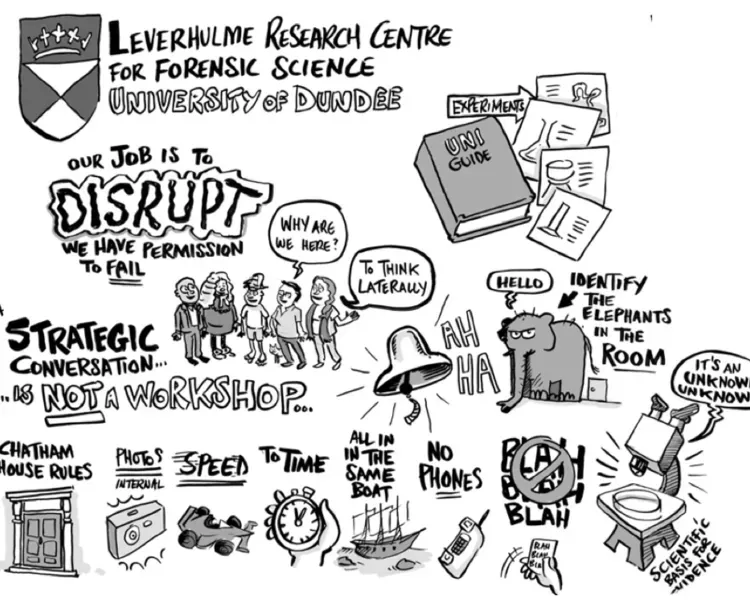 LEVERHULME RESEARCH CENTRE
FOR FORENSIC SCIENCE
UNIVERSITY OF DUNDEE
EXPERIMENTS
UNI
GUIDE
OUR JOB IS TO
DISRUPT
WE HAVE PERMISSION
TO FAIL
WHY ARE
WE HERE?
TO THINK
LATERALLY
STRATEGIC
CONVERSATION...
..IS NOT A WORKSHOP...
AH
HA
HELLO
IDENTIFY
THE
ELEPHANTS
IN THE
ROOM
IT'S AN
UNKNOWN
UNKNOW
CHATHAM
HOUSE RULES
PHOTOS
INTERNAL
SPEED
TO TIME
ALL IN
IN THE
SAME
BOAT
NO
PHONES
BLAH
BLAH
BLAH
BLAH
BLAH
BLA
SCIENTIFIC
BASIS FOR
VIDENCE